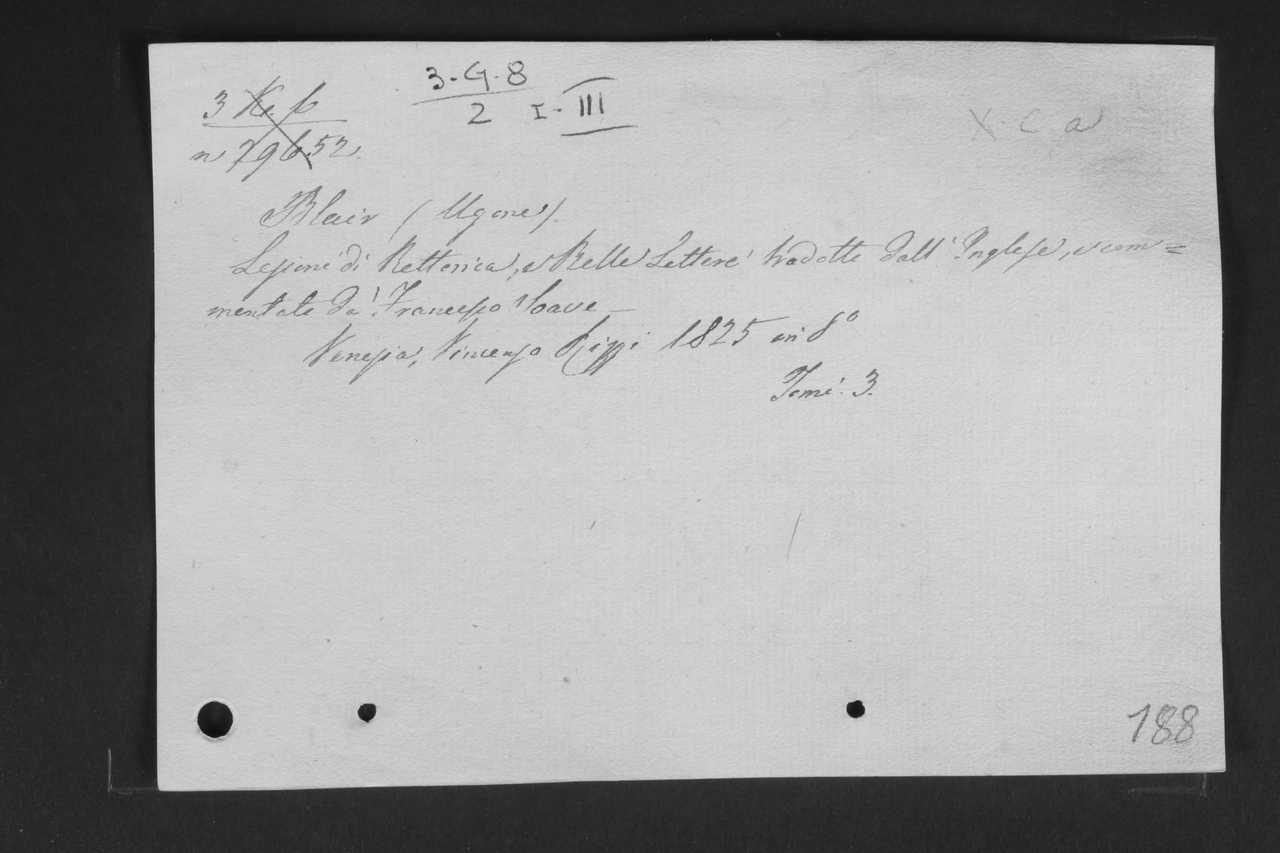 3-G-8
2 I-III
3 K. 6
n 796.52.
X c a
Blair (Ugone).
Lezioni di Rettorica, e Belle Lettere tradotte dall' Inglese, e com=
mentate da Francesco Soave —
Venezia, Vincenzo Rizzi 1825 in 8º
Tomi 3.
188